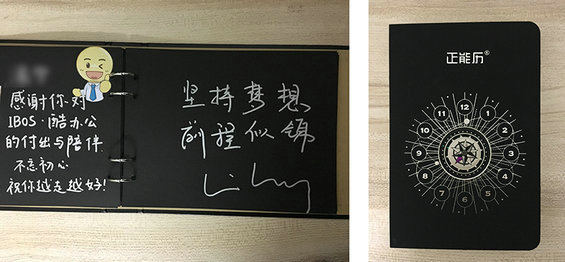 感谢你对
IBOS·酷办公
的付出与陪伴
不忘初心
祝你越走越好!
坚持梦想
前程似锦
正能历®
12
1
2
3
4
5
6
7
8
9
10
11